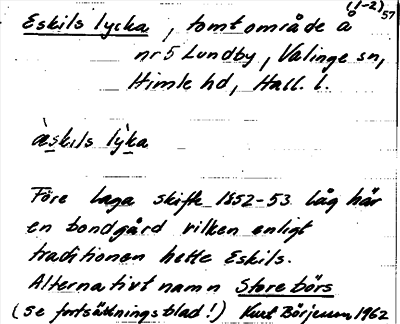 (1-2) 57
Eskils lycka, tomtområde å
nr 5 Lundby, Valinge sn,
Himle hd, Hall. l.
àskils lỳka
Före laga skifte 1852-53 låg här
en bondgård vilken enligt
traditionen hette Eskils.
Alternativt namn Storebörs
(se fortsättningsblad!) Kurt Börjesson 1962